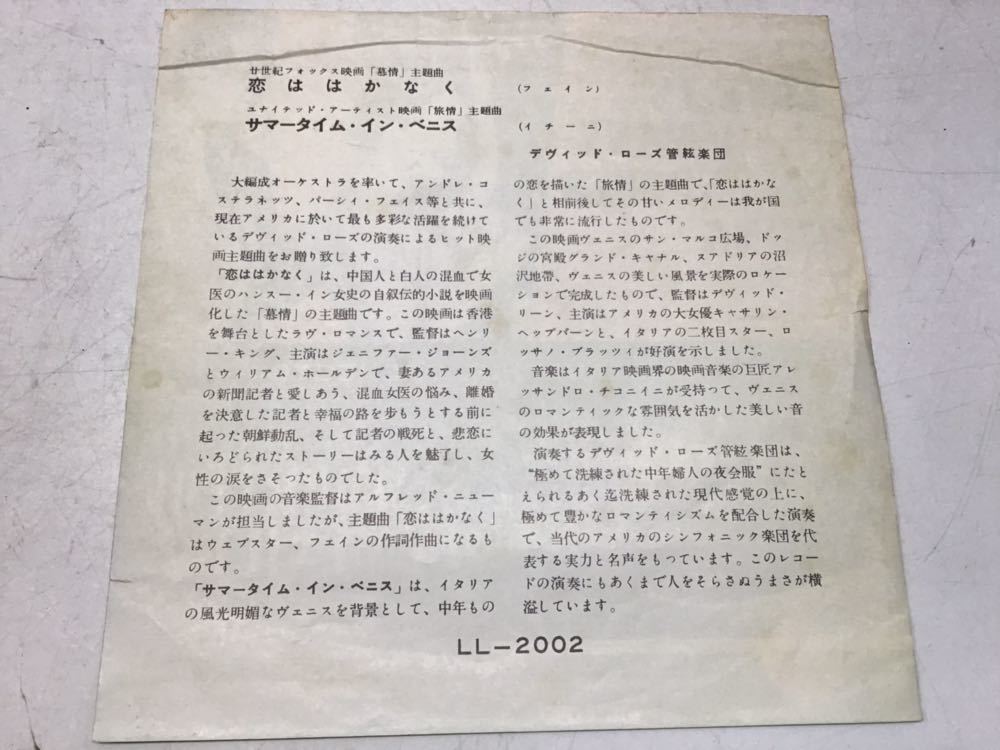 廿世紀フォックス映画「慕情」主題曲
恋ははかなく
(フェイン)
ユナイテッド・アーティスト映画「旅情」主題曲
サマータイム・イン・ベニス
(イチーニ)
デヴィッド・ローズ管絃楽団
大編成オーケストラを率いて、アンドレ・コ
ステラネッツ、パーシィ・フェイス等と共に、
現在アメリカに於いて最も多彩な活躍を続けて
いるデヴィッド・ローズの演奏によるヒット映
画主題曲をお贈り致します。
「恋ははかなく」は、中国人と白人の混血で女
医のハンスー・イン女史の自叙伝的小説を映画
化した「慕情」の主題曲です。この映画は香港
を舞台としたラヴ・ロマンスで、監督はヘンリ
ー・キング、主演はジェニファー・ジョーンズ
とウィリアム・ホールデンで、妻あるアメリカ
の新聞記者と愛しあう、混血女医の悩み、離婚
を決意した記者と幸福の路を歩もうとする前に
起った朝鮮動乱、そして記者の戦死と、悲恋に
いろどられたストーリーはみる人を魅了し、女
性の涙をさそったものでした。
この映画の音楽監督はアルフレッド・ニュー
マンが担当しましたが、主題曲「恋ははかなく」
はウェブスター、フェインの作詞作曲になるも
のです。
「サマータイム・イン・ベニス」は、イタリア
の風光明媚なヴェニスを背景として、中年もの
の恋を描いた「旅情」の主題曲で、「恋ははかな
く」と相前後してその甘いメロディーは我が国
でも非常に流行したものです。
この映画ヴェニスのサン・マルコ広場、ドッ
ジの宮殿グランド・キャナル、スアドリアの沼
沢地帯、ヴェニスの美しい風景を実際のロケー
ションで完成したもので、監督はデヴィッド・
リーン、主演はアメリカの大女優キャサリン・
ヘップバーンと、イタリアの二枚目スター、ロ
ッサノ・ブラッツィが好演を示しました。
音楽はイタリア映画界の映画音楽の巨匠アレ
ッサンドロ・チコニイニが受持つて、ヴェニス
のロマンティックな雰囲気を活かした美しい音
の効果が表現しました。
演奏するデヴィッド・ローズ管絃楽団は、
“極めて洗練された中年婦人の夜会服”にたと
えられるあく迄洗練された現代感覚の上に、
極めて豊かなロマンティシズムを配合した演奏
で、当代のアメリカのシンフォニック楽団を代
表する実力と名声をもつています。このレコー
ドの演奏にもあくまで人をそらさぬうまさが横
溢しています。
LL-2002